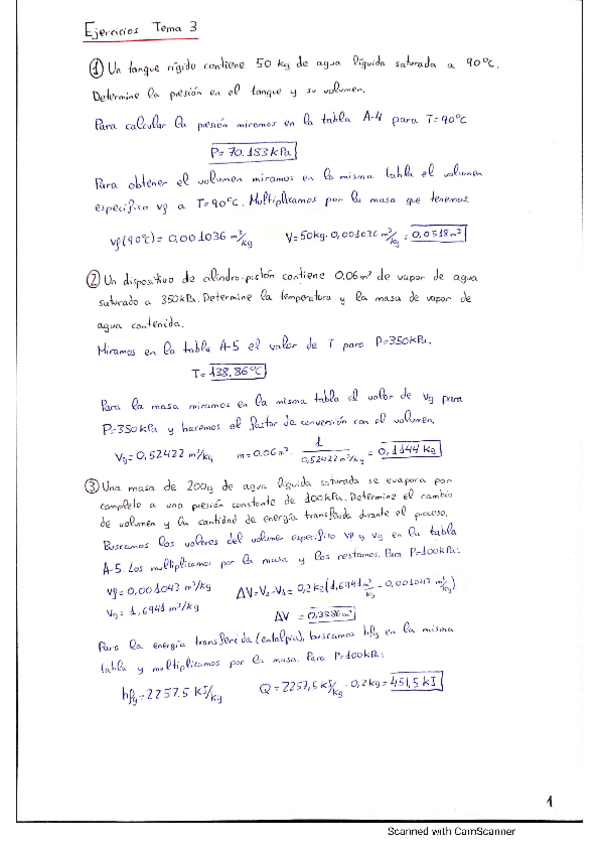 Ejercicios Tema 3
① Un tanque rígido contiene 50 kg de agua líquida saturada a 90ºC.
Determine la presión en el tanque y su volumen.
Para calcular la presión miramos en la tabla A-4 para T=90ºC
P=70.183kPa
Para obtener el volumen miramos en la misma tabla el volumen
específico vf a T=90ºC. Multiplicamos por la masa que tenemos.
vf(90ºC)=0,001036 m³/kg V=50kg·0,001036 m³/kg=0,0518m³
② Un dispositivo de cilindro-pistón contiene 0.06m³ de vapor de agua
saturado a 350kPa. Determine la temperatura y la masa de vapor de
agua contenida.
Miramos en la tabla A-5 el valor de T para P=350kPa.
T=138.86ºC
Para la masa miramos en la misma tabla el valor de vg para
P=350kPa y hacemos el factor de conversión con el volumen.
Vg=0,52422 m³/kg m=0.06m³· 1/0,52422 m³/kg = 0,1144 kg
③ Una masa de 200g de agua líquida saturada se evapora por
completo a una presión constante de 100kPa. Determine el cambio
de volumen y la cantidad de energía transferida durante el proceso.
Buscamos los valores del volumen específico vf y vg en la tabla
A-5. Los multiplicamos por la masa y los restamos. Para P=100kPa:
Vf=0,001043 m³/kg ΔV=V₂-V₁=0,2kg(1,6941 m³/kg - 0,001043 m³/kg)
Vg=1,6941 m³/kg
ΔV = 0,3386m³
Para la energía transferida (entalpía), buscamos hfg en la misma
tabla y multiplicamos por la masa. Para P=100kPa:
hfg=2257.5 kJ/kg Q=2257,5 kJ/kg·0,2kg=451,5 kJ
1
Scanned with CamScanner